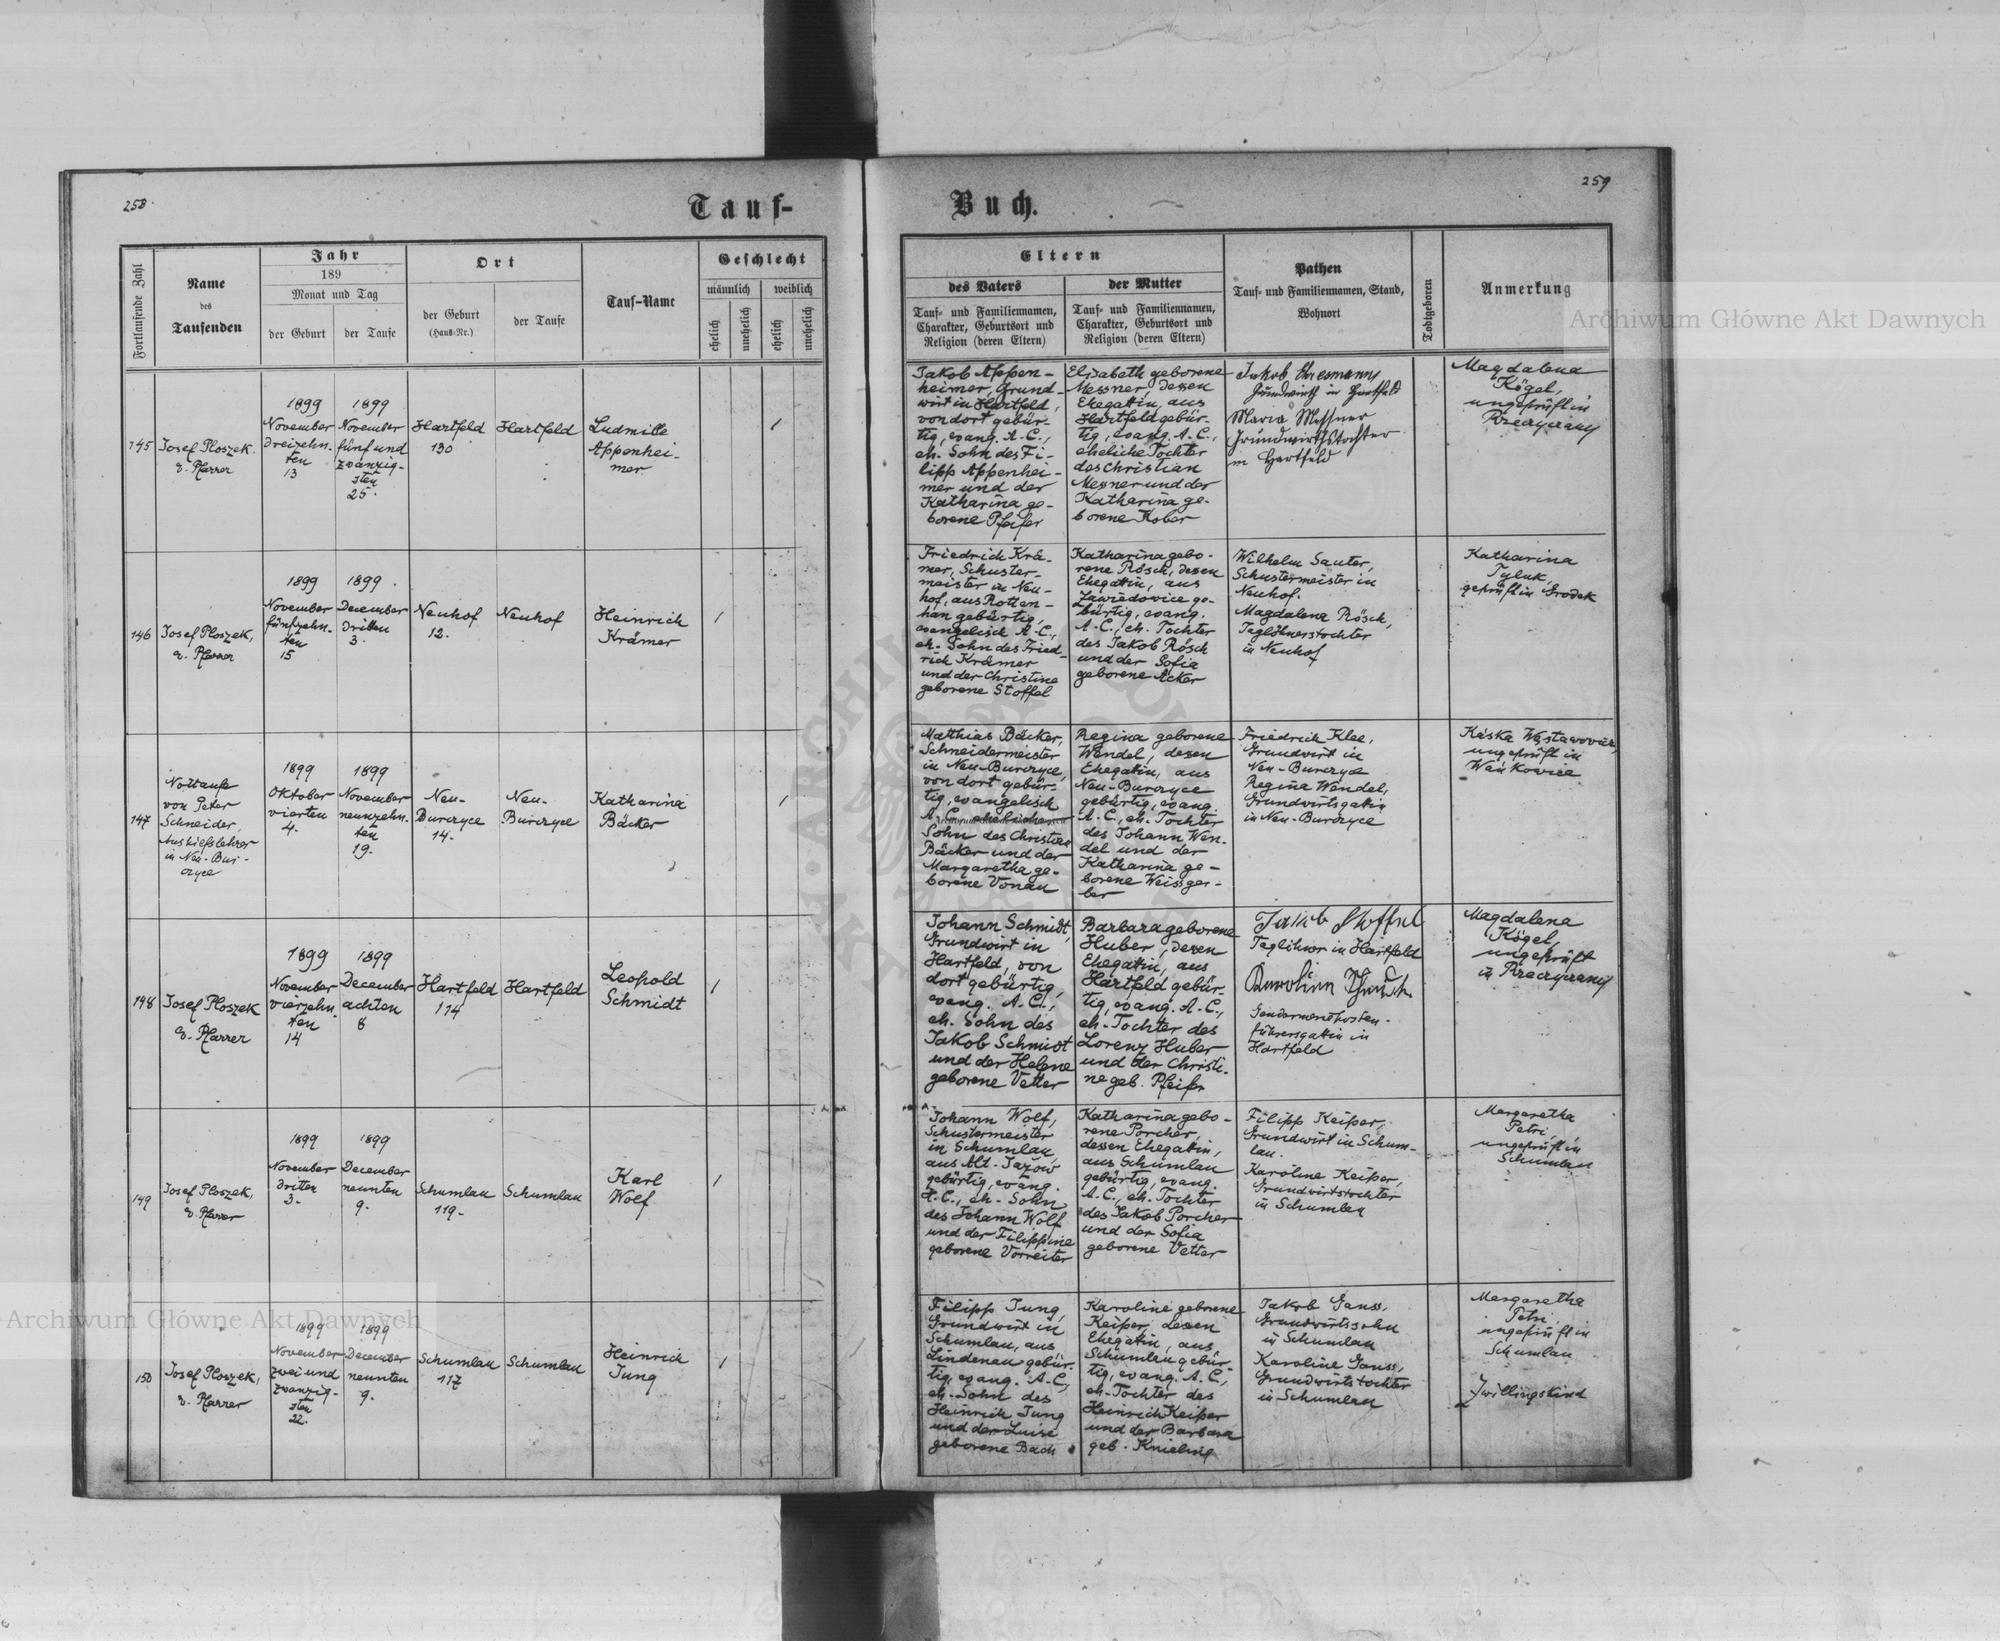 258.
Tauf-
Fortlaufende Zahl
Name
des
Taufenden
Jahr
189
Monat und Tag
der Geburt
der Taufe
Ort
der Geburt
(Haus-Nr.)
der Taufe
Tauf-Name
Geschlecht
männlich
weiblich
ehelich
unehelich
ehelich
unehelich
145
Josef Ploszek
z. Pfarrer
1899
November
dreizehn-
ten
13
1899
November
fünf und
zwanzig-
sten
25.
Hartfeld
130
Hartfeld
Ludmille
Appenhei-
mer
1
146
Josef Ploszek,
z. Pfarrer
1899
November
fünfzehn-
ten
15
1899.
December
dritten
3.
Neuhof
12.
Neuhof
Heinrich
Krämer
1
147
Nottaufe
von Peter
Schneider,
Aushilfslehrer
in Neu-Bur-
czyce
1899
Oktober
vierten
4.
1899
November
neunzehn-
ten
19.
Neu-
Burczyce
14.
Neu-
Burczyce
Katharina
Bäcker
1
148
Josef Ploszek
z. Pfarrer
1899
November
vierzehn
ten
14
1899
December
achten
8
Hartfeld
114
Hartfeld
Leopold
Schmidt
1
149
Josef Ploszek,
z. Pfarrer
1899
November
dritten
3.
1899
December
neunten
9.
Schumlau
119.
Schumlau
Karl
Wolf
1
150
Josef Ploszek,
z. Pfarrer
1899
November
zwei und
zwanzig-
sten
22.
1899
December
neunten
9.
Schumlau
117
Schumlau
Heinrich
Jung
1
Buch.
259
Eltern
des Vaters
Tauf- und Familiennamen,
Charakter, Geburtsort und
Religion (deren Eltern)
der Mutter
Tauf- und Familiennamen,
Charakter, Geburtsort und
Religion (deren Eltern)
Pathen
Tauf- und Familiennamen, Stand,
Wohnort
Todtgeboren
Anmerkung
Jakob Appen-
heimer, Grund-
wirt in Hartfeld,
von dort gebür-
tig, evang. A.C.,
eh. Sohn des Fi-
lipp Appenhei-
mer und der
Katharina ge-
borene Pfeifer
Elisabeth geborene
Messner, dessen
Ehegattin, aus
Hartfeld gebür-
tig, evang. A.C.,
eheliche Tochter
des Christian
Messner und der
Katharina ge-
borene Kober
Jakob Ehresmann
Grundwirth in Hartfeld
Maria Messner
Grundwirthstochter
in Hartfeld
Magdalena
Kögel,
ungeprüft in
Rzeczyczany
Friedrich Krä-
mer, Schuster-
meister in Neu-
hof, aus Rotten-
han gebürtig,
evangelisch A.C.,
eh. Sohn des Fried-
rich Krämer
und der Christine
geborene Stoffel
Katharina gebo-
rene Rösch, dessen
Ehegattin, aus
Zawidowice ge-
bürtig, evang.
A.C., eh. Tochter
des Jakob Rösch
und der Sofia
geborene Acker
Wilhelm Sauter,
Schustermeister in
Neuhof.
Magdalena Rösch,
Taglöhnerstochter
in Neuhof
Katharina
Tyluk,
geprüft in Grodek
Matthias Bäcker,
Schneidermeister
in Neu-Burczyce,
von dort gebür-
tig, evangelisch
A.C., ehelicher
Sohn des Christian
Bäcker und der
Margaretha ge-
borene Vonau
Regina geborene
Wendel, dessen
Ehegattin, aus
Neu-Burczyce
gebürtig, evang.
A.C., eh. Tochter
des Johann Wen-
del und der
Katharina ge-
borene Weissger-
ber
Friedrich Klee,
Grundwirt in
Neu-Burczyce
Regina Wendel,
Grundwirtsgattin
in Neu-Burczyce
ungeprüft in
Johann Schmidt,
Grundwirt in
Hartfeld, von
dort gebürtig,
evang. A.C.,
eh. Sohn des
Jakob Schmidt
und der Helene
geborene Vetter
Barbara geborene
Huber, dessen
Ehegattin, aus
Hartfeld gebür-
tig, evang. A.C.,
eh. Tochter des
Lorenz Huber
und der Christi-
ne geb. Pfeifer
Jakob Stoffel
Taglöhner in Hartfeld
Karolina
Gendarmeriposten-
führersgattin in
Hartfeld
Magdalena
Kögel,
ungeprüft
in Rzeczyczany
Johann Wolf,
Schustermeister
in Schumlau,
aus Alt-Jazow
gebürtig, evang.
A.C., eh. Sohn
des Johann Wolf
und der Filippine
geborene Vorreiter
Katharina gebo-
rene Porcher,
dessen Ehegattin,
aus Schumlau
gebürtig, evang.
A.C., eh. Tochter
des Jakob Porcher
und der Sofia
geborene Vetter
Filipp Keiper,
Grundwirt in Schum-
lau.
Karoline Keiper,
Grundwirtstochter
in Schumlau
Margaretha
Petri,
ungeprüft in
Schumlau
Filipp Jung,
Grundwirt in
Schumlau, aus
Lindenau gebür-
tig, evang. A.C.,
eh. Sohn des
Heinrich Jung
und der Luise
geborene Bach
Karoline geborene
Keiper, dessen
Ehegattin, aus
Schumlau gebür-
tig, evang. A.C.,
eh. Tochter des
Heinrich Keiper
und der Barbara
geb. Knieling
Jakob Gauss,
Grundwirtssohn
in Schumlau
Karoline Gauss,
Grundwirtstochter
in Schumlau
Margaretha
Petri,
ungeprüft in
Schumlau
Zwillingskind
Archiwum Główne Akt Dawnych
Archiwum Główne Akt Dawnych